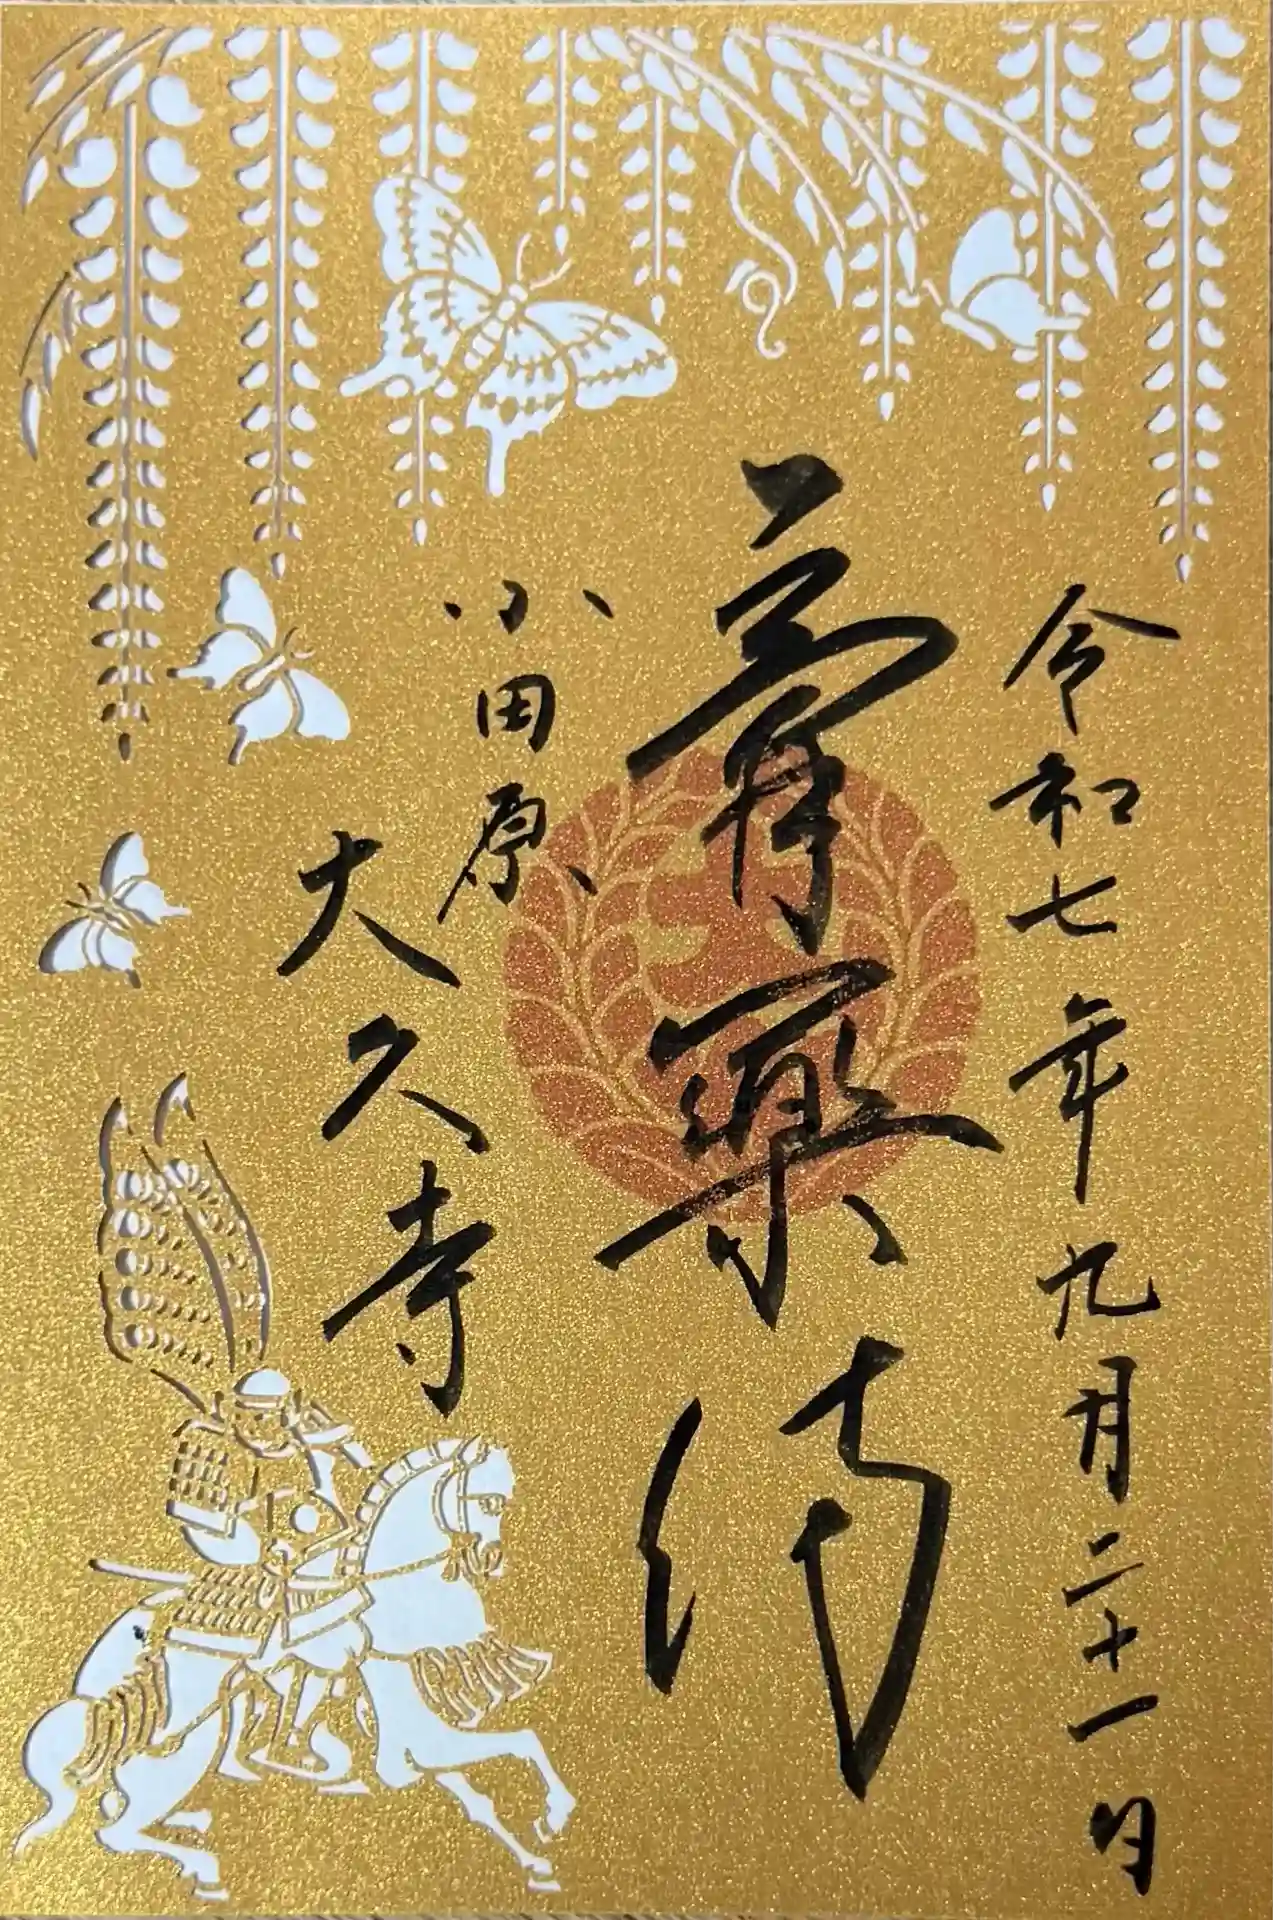 令和七年九月二十一日
大
小田原
大久寺